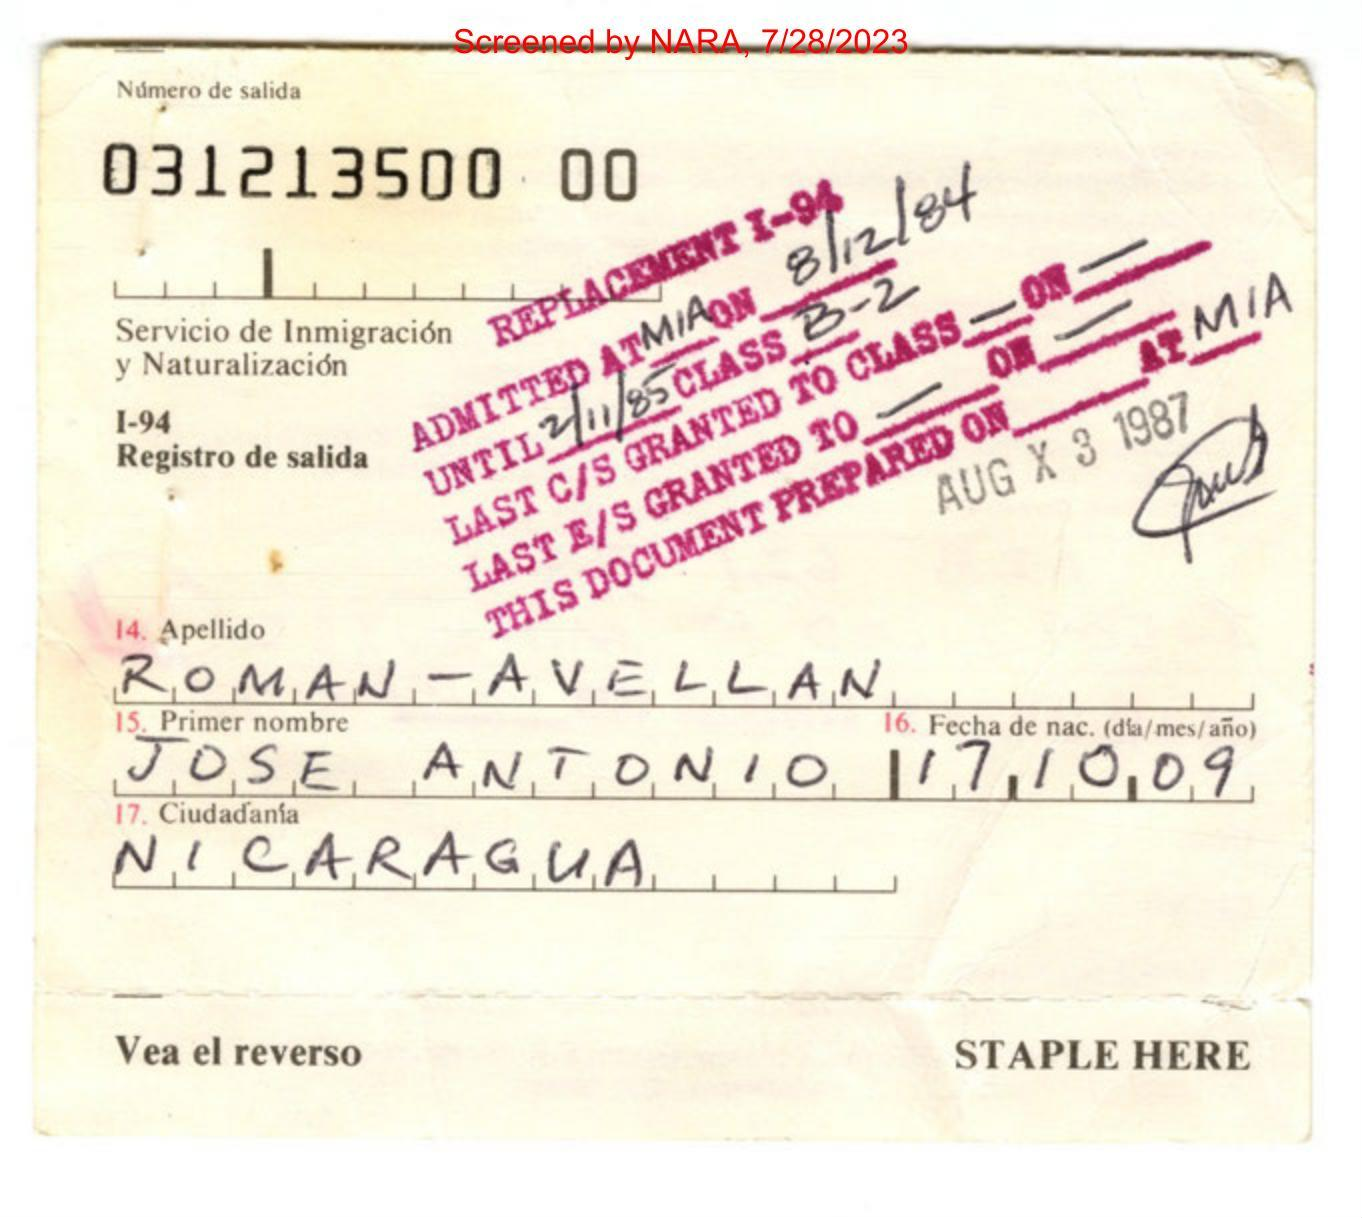 Screened by NARA, 7/28/2023
Número de salida
031213500 00
Servicio de Inmigración
y Naturalización
I-94
Registro de salida
REPLACEMENT I-94
ADMITTED AT MIA ON 8/12/84
UNTIL 2/11/85 CLASS B-2
LAST C/S GRANTED TO CLASS — ON —
LAST E/S GRANTED TO — ON —
THIS DOCUMENT PREPARED ON AT MIA
AUG X 3 1987
14. Apellido
ROMAN-AVELLAN
15. Primer nombre 16. Fecha de nac. (día/mes/año)
JOSE ANTONIO 17 10 09
17. Ciudadanía
NICARAGUA
Vea el reverso STAPLE HERE